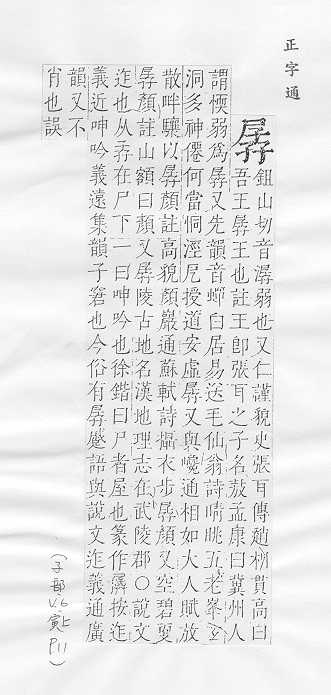 正字通
孱
鉏山切音潺弱也又仁謹貌史張耳傳趙相貫高曰
吾王孱王也註王卽張耳之子名敖孟康曰冀州人
謂愞弱爲孱又先韻音蟬白居易送毛仙翁詩晴眺五老峯玉
洞多神僊何當憫湮厄授道安虛孱又與巉通相如大人賦放
散畔驥以孱顏註高貌顏巖通蘇軾詩攝衣步孱顏又空碧
孱顏註山額曰顏又孱陵古地名漢地理志在武陵郡○說文
迮也从孨在尸下一曰呻吟也徐鍇曰尸者屋也篆作孱按迮
義近呻吟義遠集韻孑窘也今俗有孱語與說文迮義通廣
韻又不
肖也誤
(子部 V.6 寅上 P11)